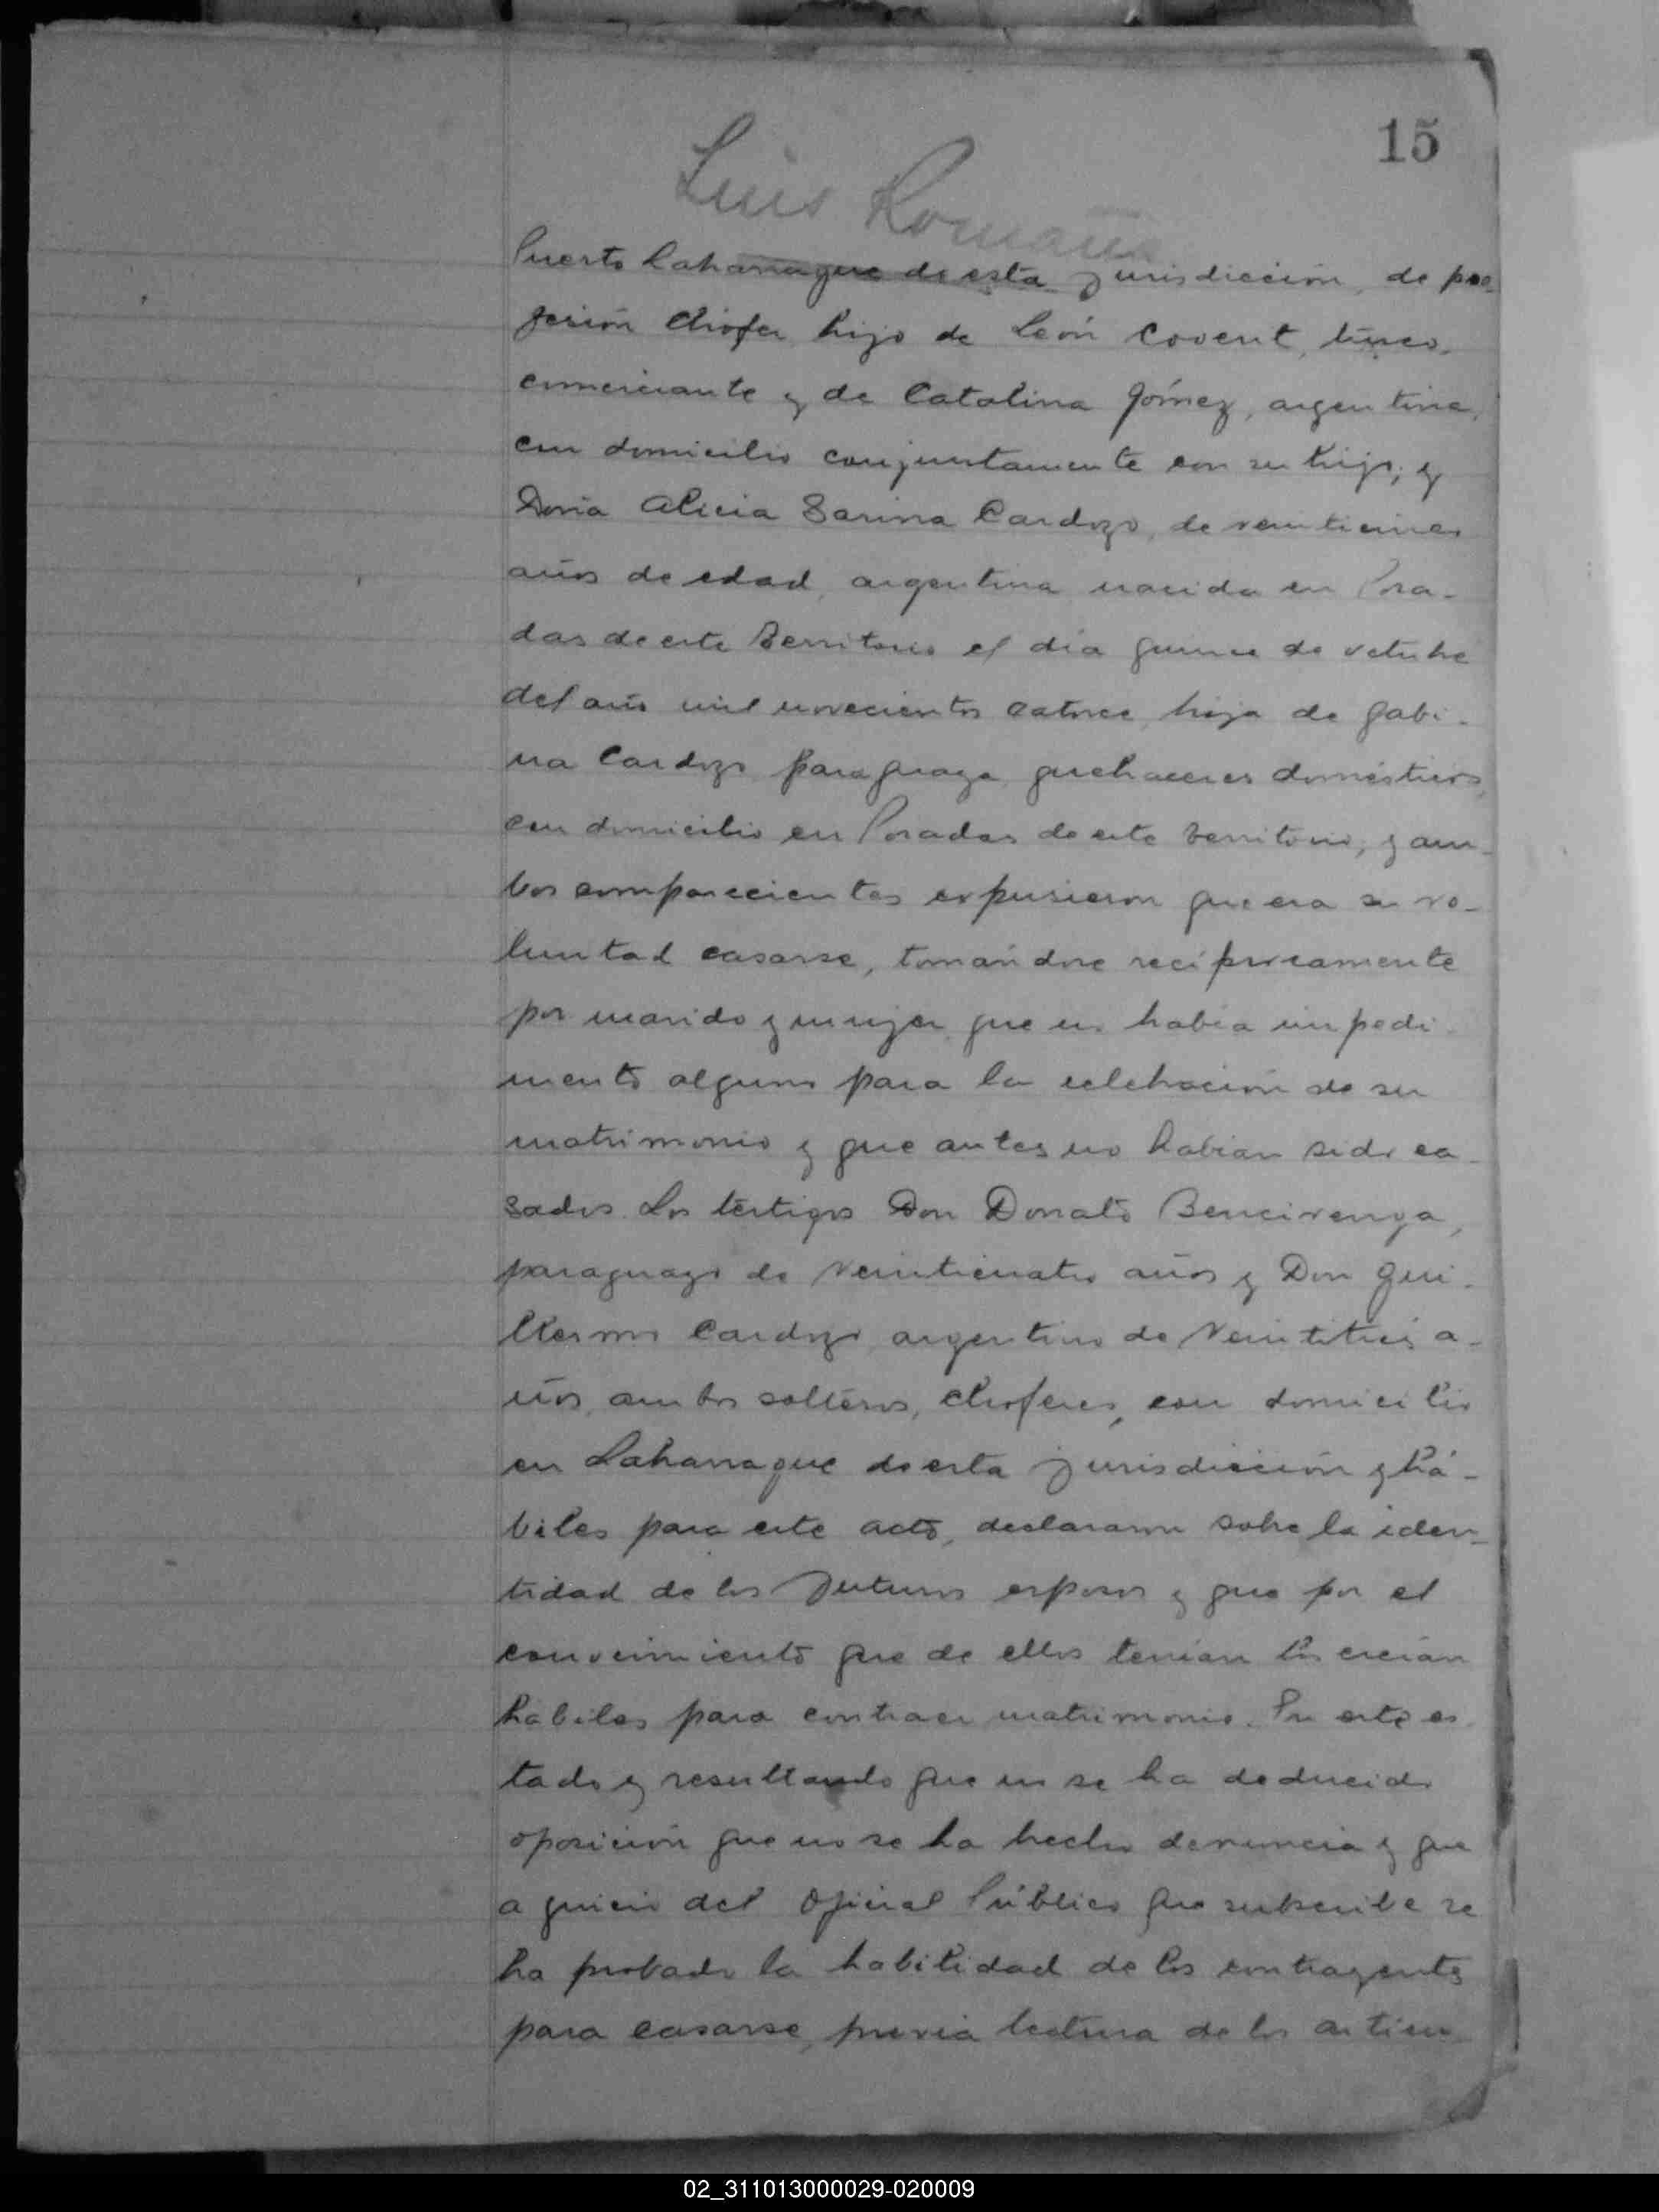 15
Luis Romaña
Puerto Cahanague de esta jurisdicción, de pro-
fesión chofer hijo de León Covent, turco,
comerciante y de Catalina Gómez, argentina,
con domicilio conjuntamente con su hijo; y
Doña Alicia Sarina Cardozo, de veinticinco
años de edad, argentina nacida en Posa-
das de este Territorio el día quince de octubre
del año mil novecientos catorce, hija de Gabi-
na Cardozo paraguaya quehaceres domésticos,
con domicilio en Posadas de este territorio; y am-
bos comparecientes expusieron que era su vo-
luntad casarse, tomándose recíprocamente
por marido y mujer que no había impedi-
mento alguno para la celebración de su
matrimonio y que antes no habían sido ca-
sados. Los testigos Don Donato Bencivenga,
paraguayo de veinticuatro años y Don Gui-
llermo Cardozo argentino de veintitrés a-
ños, ambos solteros, choferes, con domicilio
en Lahanague de esta jurisdicción y há-
biles para este acto, declararon sobre la iden-
tidad de los futuros esposos y que por el
conocimiento que de ellos tenían los creían
habiles para contraer matrimonio. En este es-
tado y resultando que no se ha deducido
oposición que no se ha hecho denuncia y que
a juicio del Oficial Público que subscribe se
ha probado la habilidad de los contrayentes
para casarse, previa lectura de los articu
02_311013000029-020009